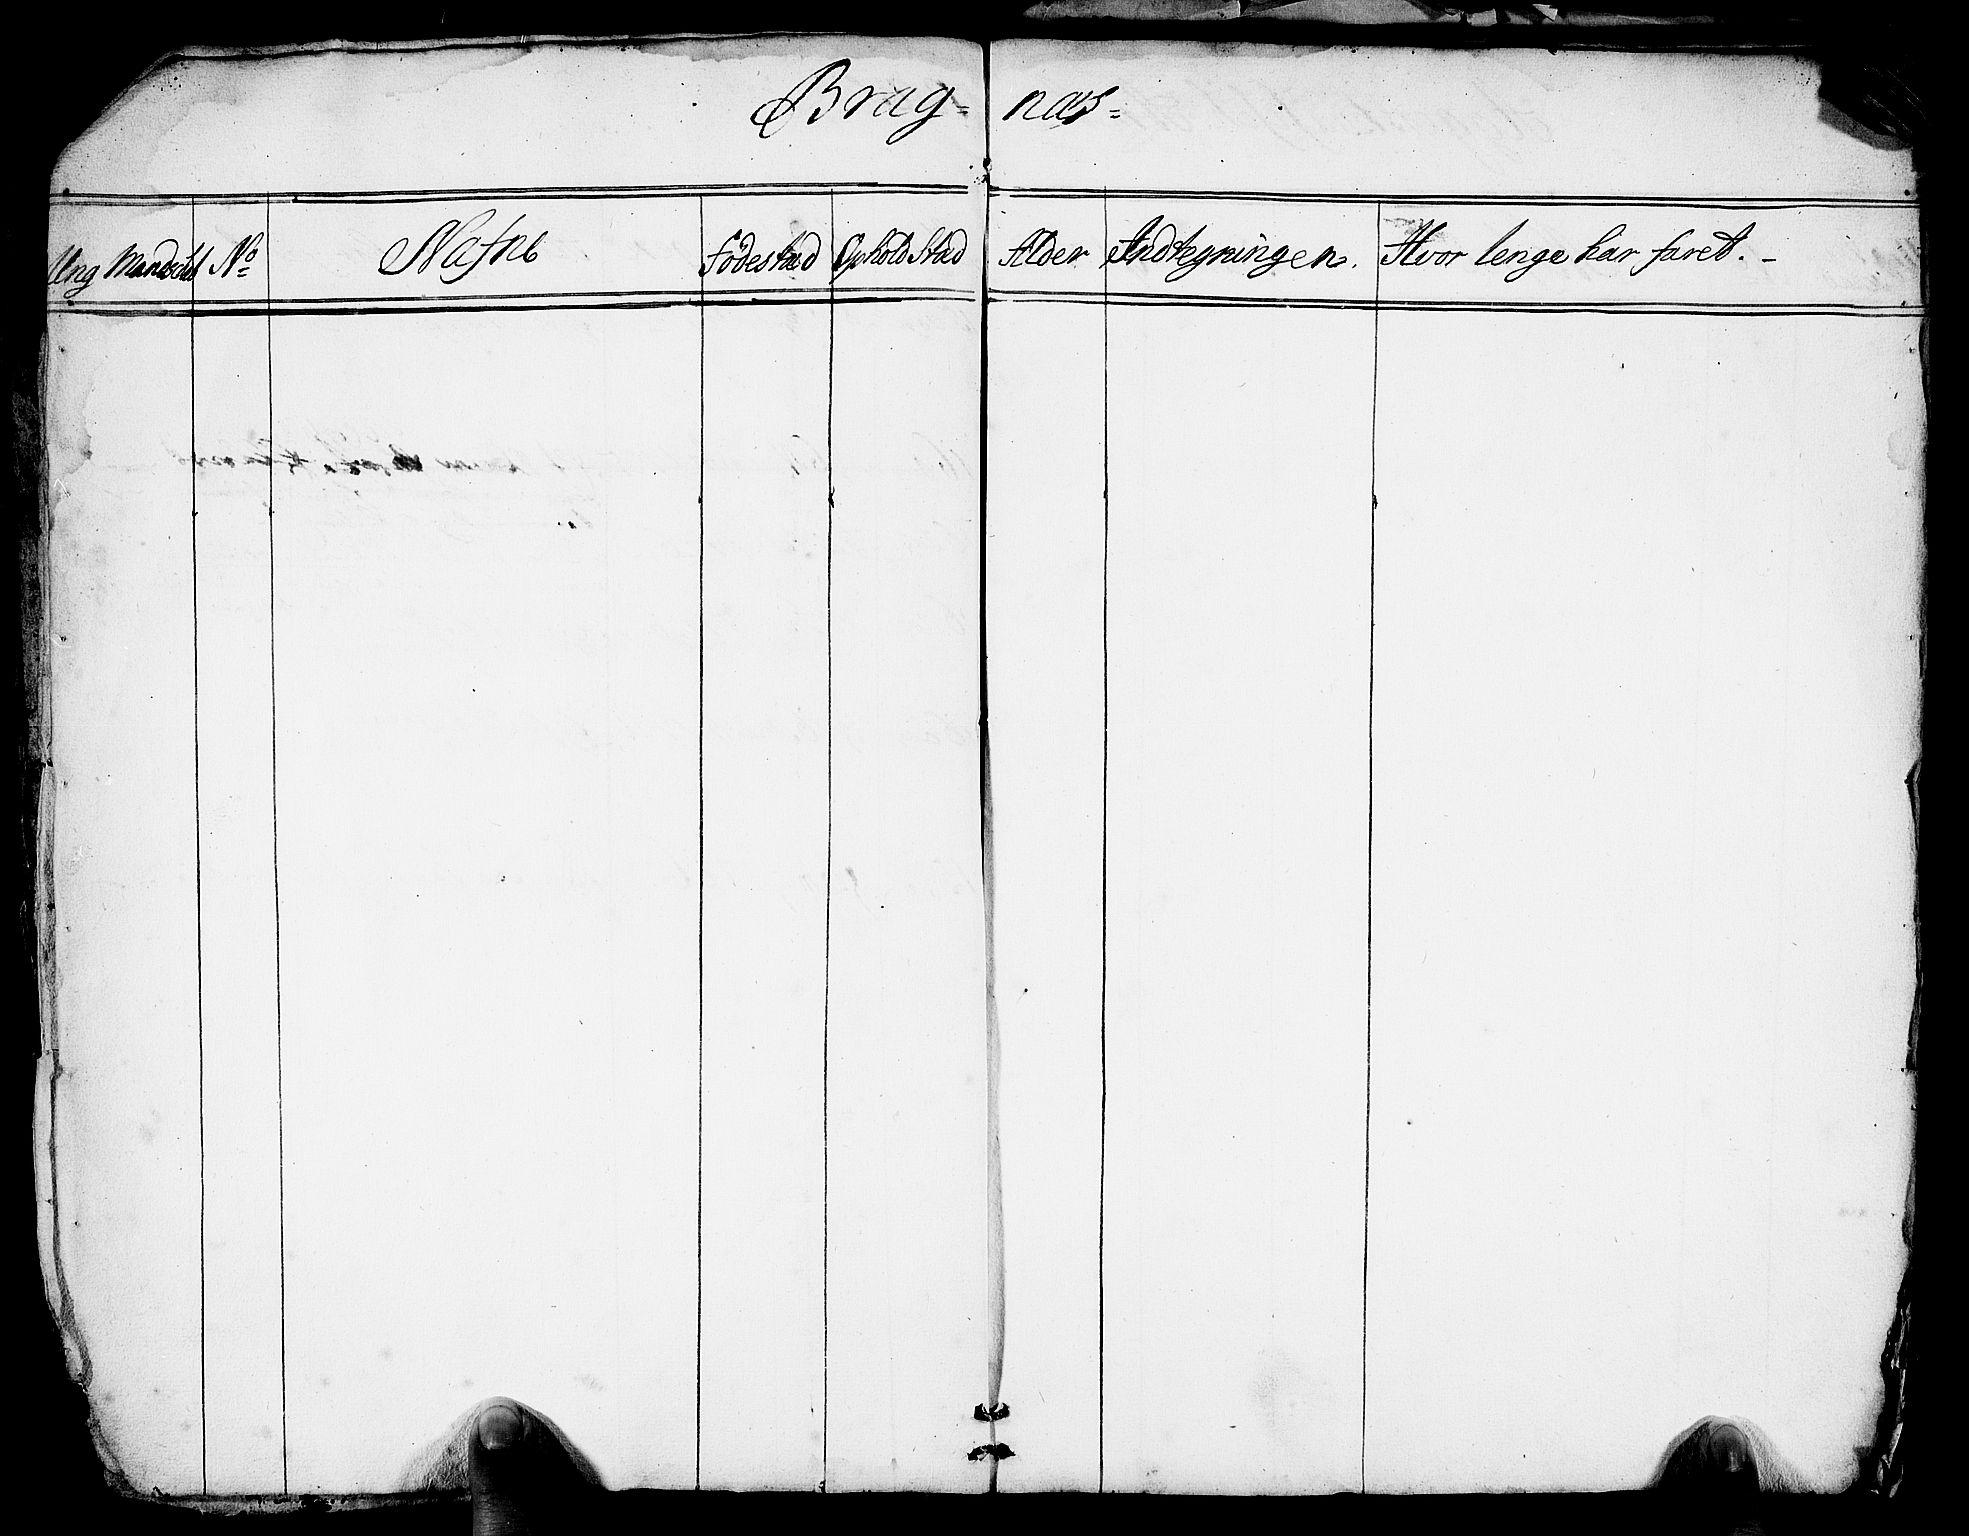 Brag= næs=
Ung Mandskab No Nafne Födestæd Ophold Stæd Alder Indtegningen. Hvor lenge har faret. -